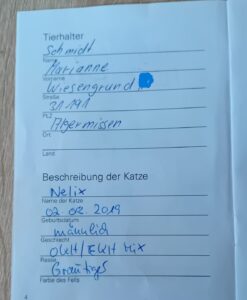 Tierhalter
Schmidt
Name
Marianne
Vorname
Wiesengrund
Straße
31191
PLZ
Algermissen
Ort
Land
Beschreibung der Katze
Nelix
Name der Katze
02.02.2019
Geburtsdatum
männlich
Geschlecht
OKH/EKH Mix
Rasse
Graútiger
Farbe des Fells
4